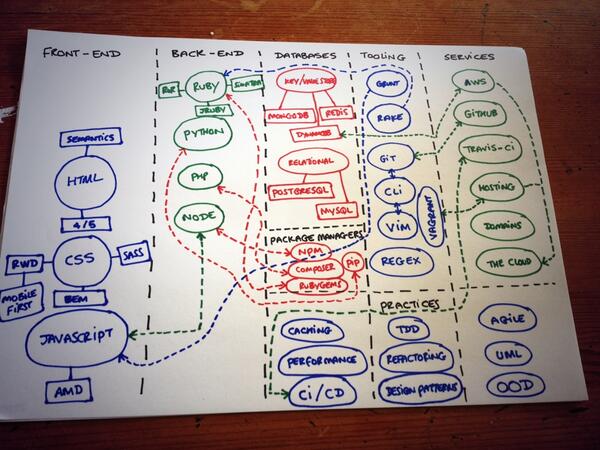 FRONT-END
BACK-END
DATABASES
TOOLING
SERVICES
SEMANTICS
HTML
4/5
CSS
RWD
SASS
MOBILE
FIRST
BEM
JAVASCRIPT
AMD
RUBY
RoR
SINATRA
JRUBY
PYTHON
PHP
NODE
KEY/VALUE STORE
MONGODB
REDIS
DYNAMODB
RELATIONAL
POSTGRESQL
MYSQL
PACKAGE MANAGERS
NPM
COMPOSER
PiP
RUBYGEMS
GRUNT
RAKE
GiT
CLi
ViM
VAGRANT
REGEX
AWS
GiTHUB
TRAVIS-Ci
HOSTING
DOMAINS
THE CLOUD
PRACTICES
CACHING
PERFORMANCE
Ci/CD
TDD
REFACTORING
DESIGN PATTERNS
AGILE
UML
OOD